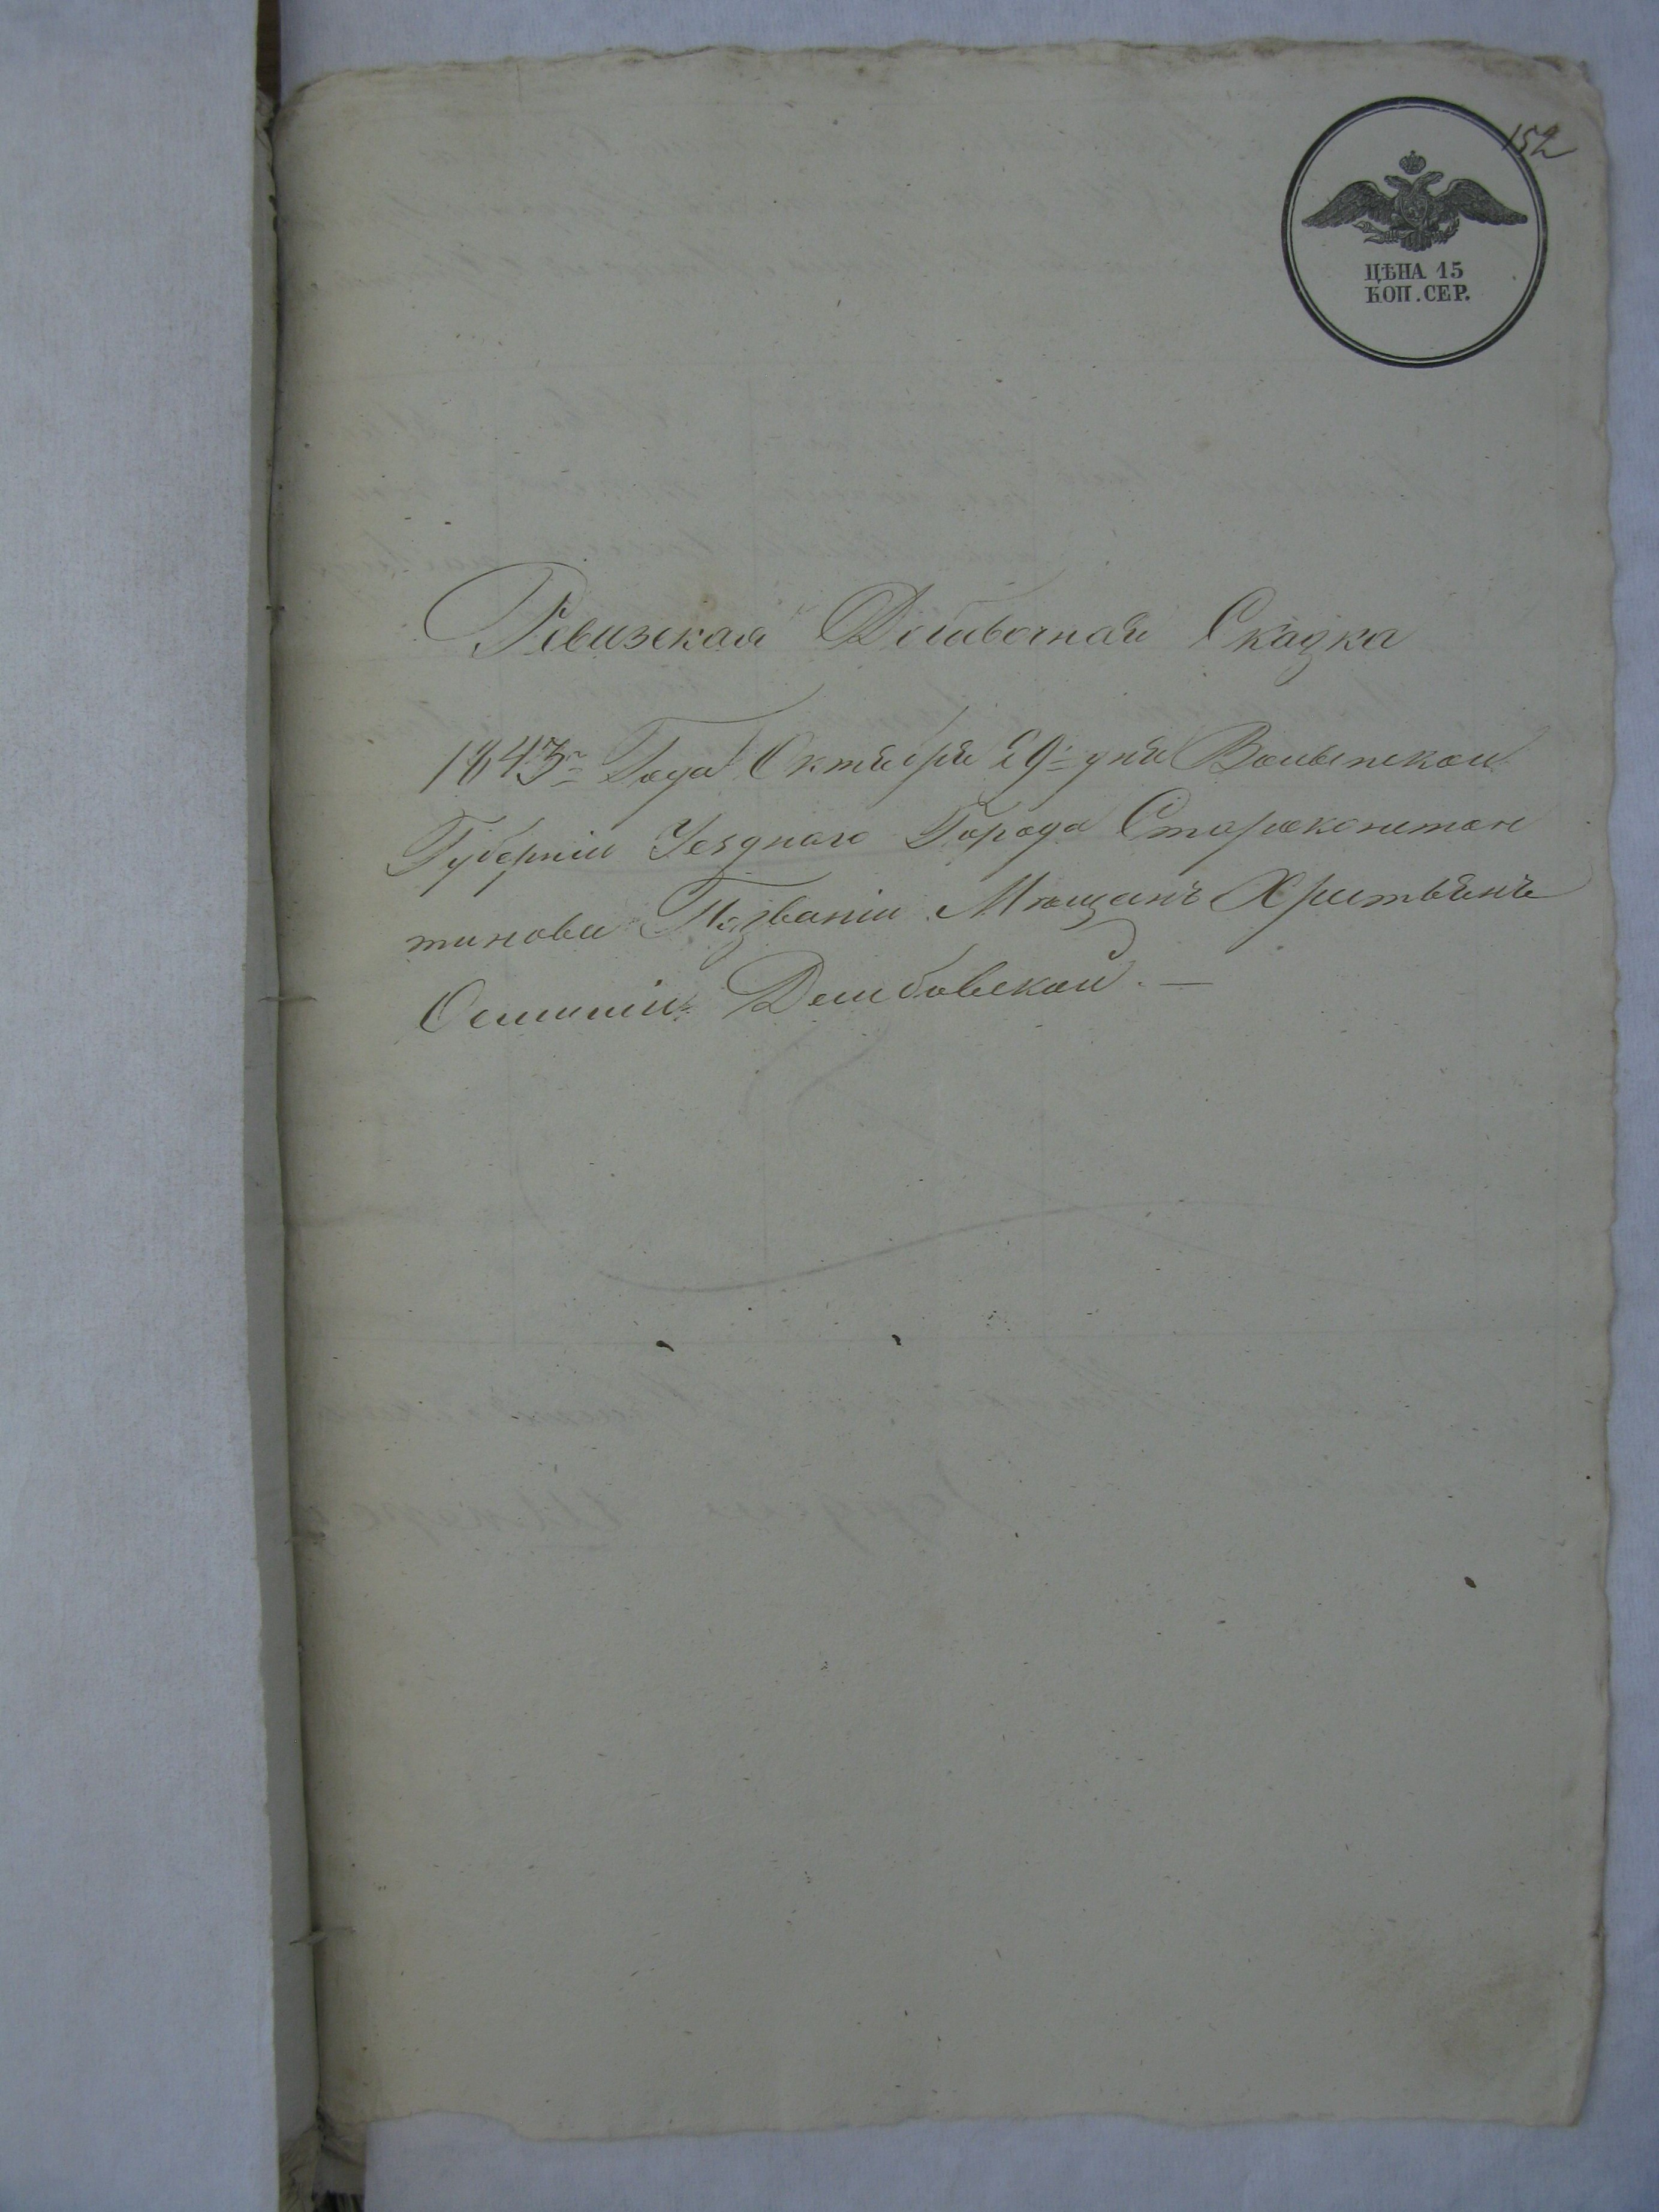 152
ЦѢНА 15
КОП. СЕР.
Ревизская Добавочная Сказка
1843го Года Октября 29го дня Волынской
Губерніи Уезднаго Города Староконстан
тинова Мещанъ Христьянъ
Фамиліи Дембовской. —